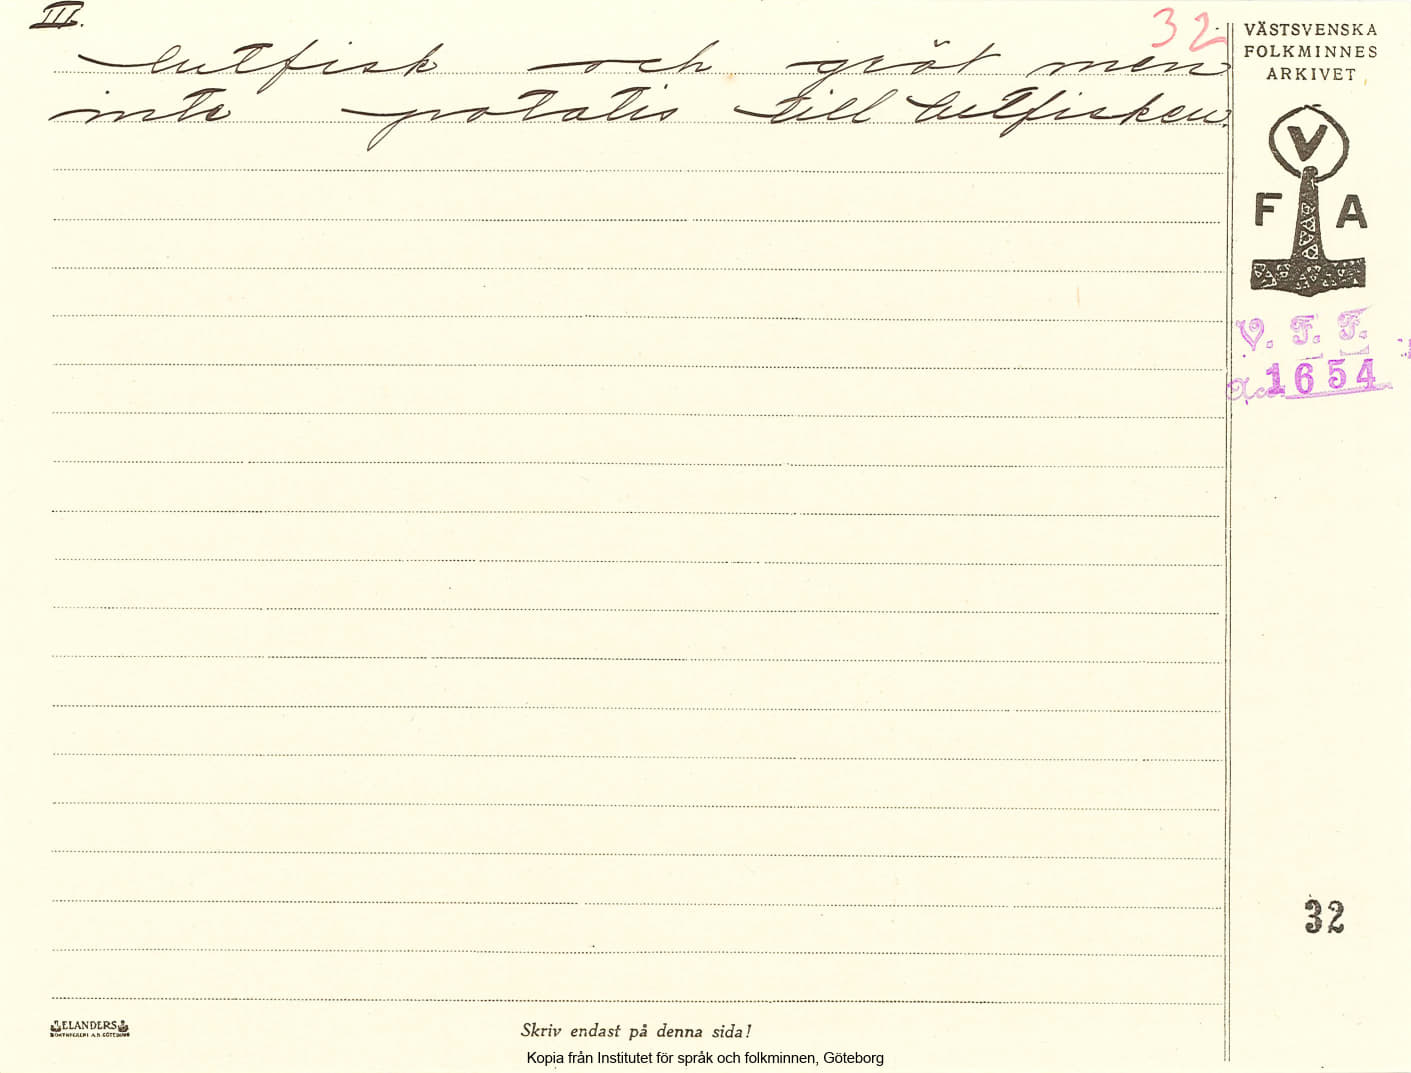 III.
32
lutfisk och gröt men
inte potatis till lutfisken.
VÄSTSVENSKA
FOLKMINNES
ARKIVET
V
F A
V. F. F.
Acc. 1654
32
ELANDERS
BOKTRYCKERI A.B. GÖTEBORG
Skriv endast på denna sida!
Kopia från Institutet för språk och folkminnen, Göteborg